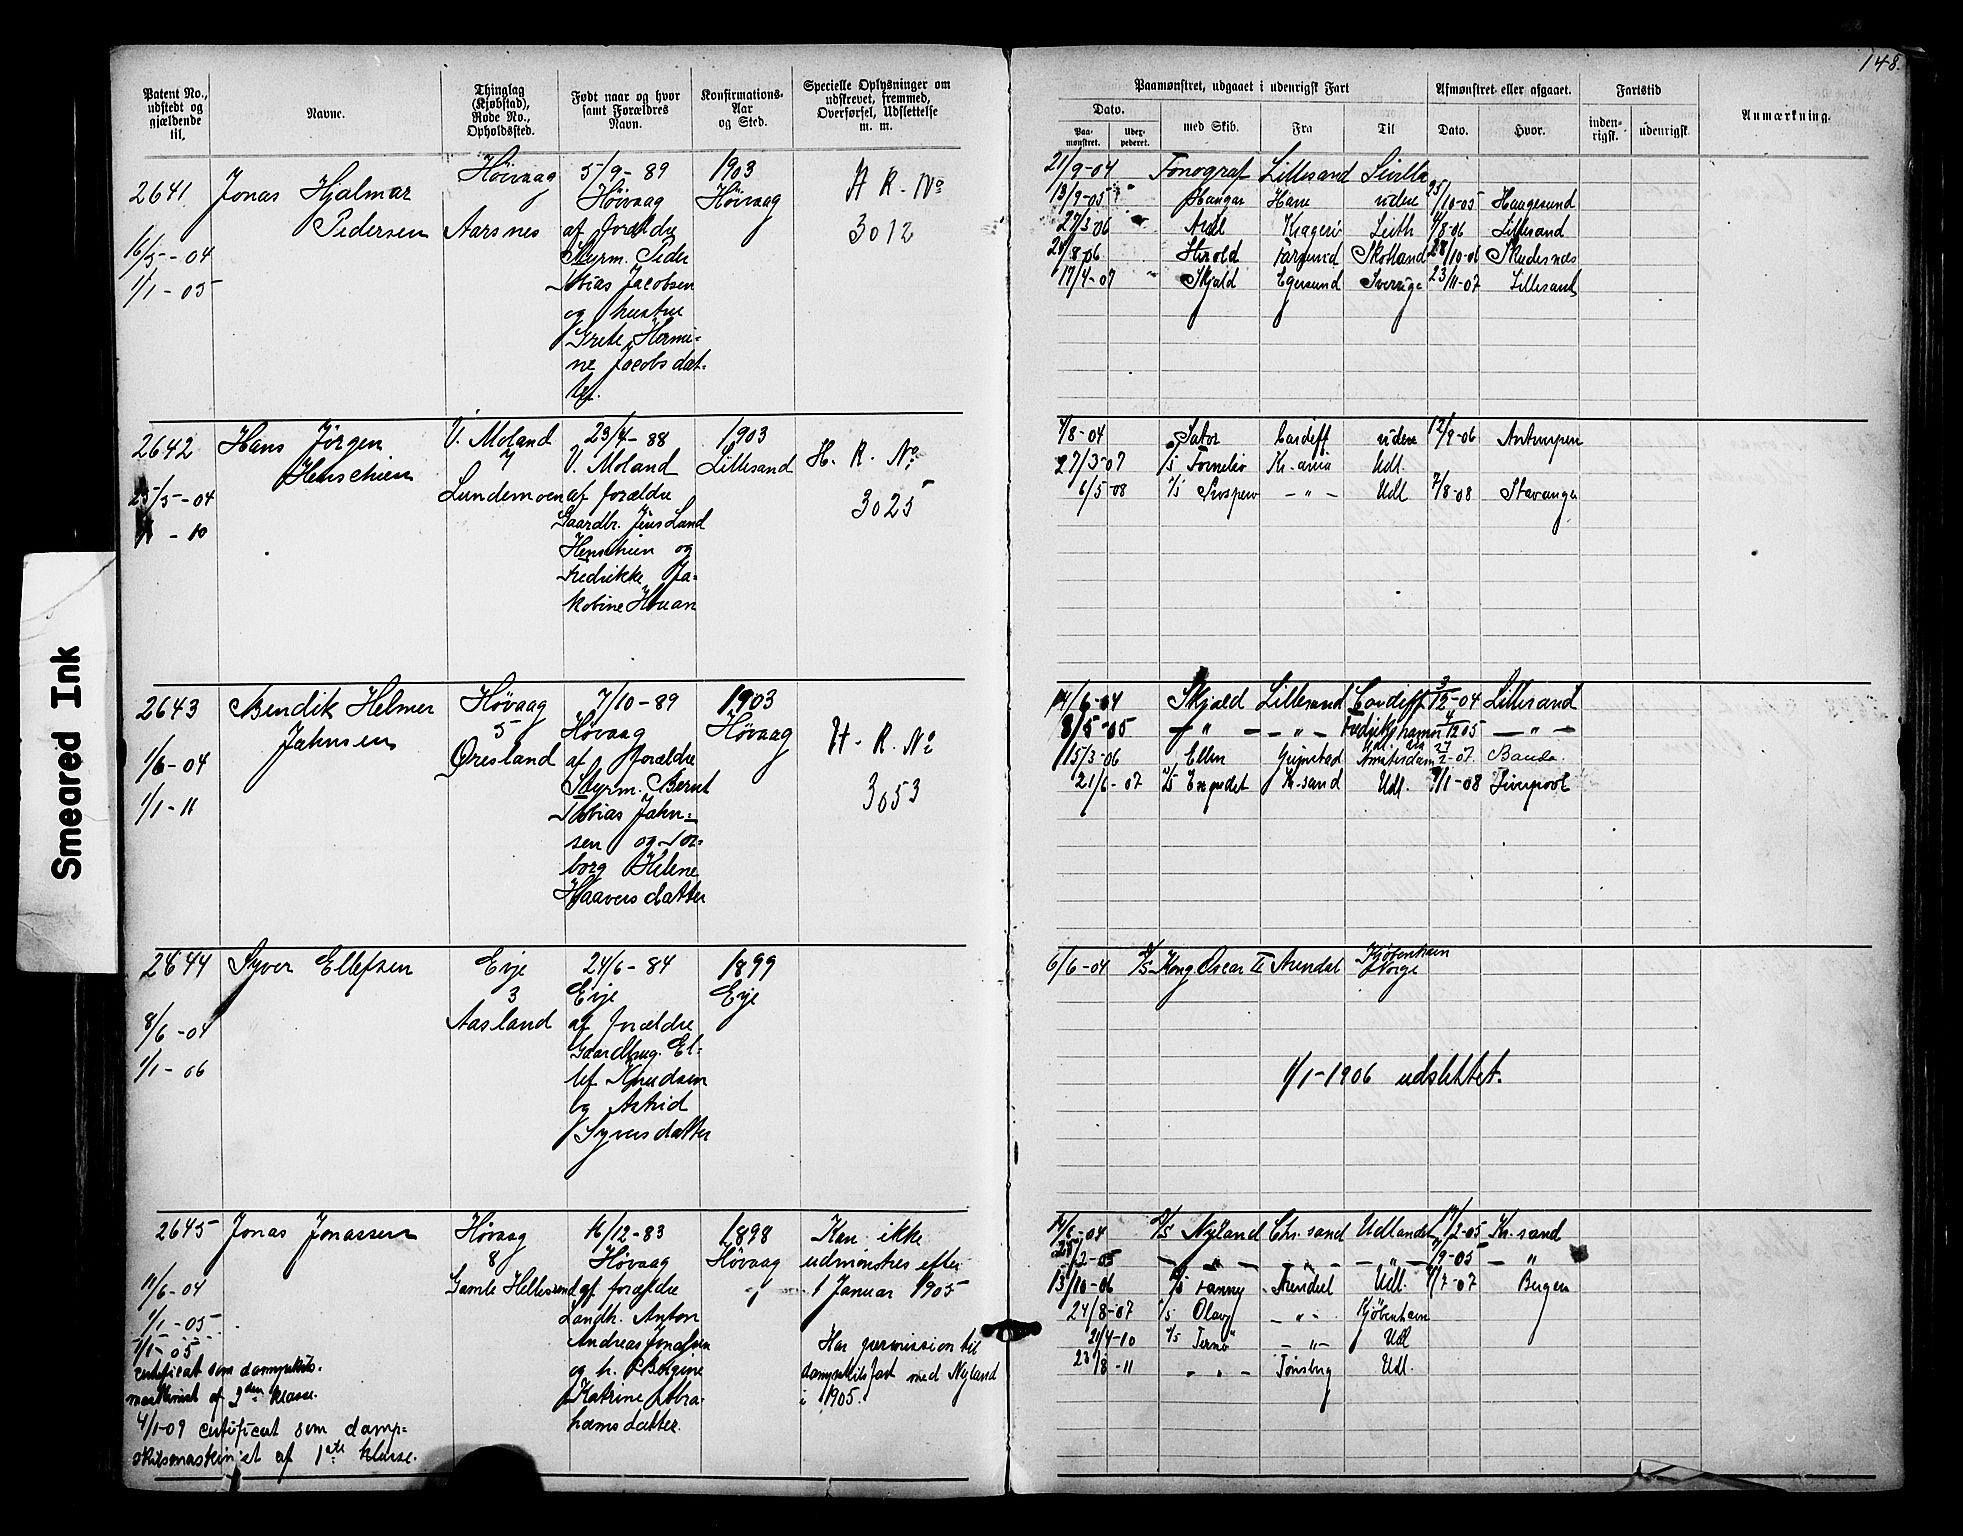 148.
Patent No., udstedt og gjældende til.
Navne.
Thinglag (Kjøbstad), Rode No., Opholdssted.
Født naar og hvor samt Forældres Navn.
Konfirmations-Aar og Sted.
Specielle Oplysninger om udskrevet, fremmed, Overførsel, Udslettelse m. m.
Paamønstret, udgaaet i udenrigsk Fart
Dato.
Paa-mønstret.
Uder-pederet.
med Skib.
Fra
Til
Afmønstret eller afgaaet.
Dato.
Hvor.
Fartstid
inden-rigsk.
udenrigsk.
Anmærkning.
2641
16/5-04
1/1-05
Jonas Hjalmar
Pedersen
Høivaag
Aarsnes
5/9-89
Høivaag
af forældre
Styrm. Peder
Tobias Jacobsen
og hustru
Grete Hermi-
ne Jacobsdat-
ter.
1903
Høivaag
H R. No
3012
21/9-04 Fonograf Lillesand Sevilla
13/9-05 Havre videre 25/10-05 Haugesund
27/3-06 Axel Kragerø Leith 4/8-06 Lillesand
24/8-06 Herold Farsund Skotland 28/10-06 Skudesnes
17/4-07 Skjald Egersund Sverige 23/11-07 Lillesand
2642
25/5-04
- 10
Hans Jörgen
Henschien
V. Moland
7
Lundemoen
23/4-88
V. Moland
af forældre
Gaardbr. Jens Lund
Henschien og
Fredrikke Ja-
kobine Houan
1903
Lillesand
H. R. No
3025
7/8-04 Sator Cardeff videre 12/9-06 Antwerpen
27/3-07 Kr.ania Udl.
6/5-08 - " - Udl 7/8-08 Stavanger
2643
1/6-04
1/1-11
Bendik Helmer
Jahnsen
Høvaag
5
Øresland
7/10-89
Høvaag
af forældre
Styrm. Bernt
Tobias Jahn-
sen og Tor-
borg Helene
Haavorsdatter
1903
Høvaag
H. R. No
3053
14/6-04 Skjald Lillesand Cardeff 3/12-04 Lillesand
8/5-05 - " - - " - Fredrikshamn 4/12 05 - " -
15/3-06 Ellen Grimstad Amsterdam 27/2-07
21/6-07 Kr.sand Udl. 9/1-08 Liverpool
2644
8/6-04
1/1-06
Syver Ellefsen
Evje
3
Aasland
24/6-84
Evje
af forældre
Gaardbrug. El-
lef Knudsen
og Astrid
Syversdatter
1899
Evje
6/6-04 D/S Kong Oscar II Arendal Kjøbenhavn
Norge
1/1-1906 udslettet.
2645
11/6-04
1/1-05
1/1-05
certifikat som dampskibs-
maskinist af 2den klasse.
4/1-09 certificat som damp-
skibsmaskinist af 1ste klasse.
Jonas Jonassen
Høvaag
8
Gamle Hellesund
16/12-83
Høvaag
af forældre
Landh. Anton
Andreas Jonassen
og h. Bergine
Katrine Abra-
hamsdatter.
1898
Høvaag
Kan ikke
udmönstres efter
1 Januar 1905
Har permission til
dampskibsfart med Nyland
i 1905.
14/6-04 D/S Nyland Chr.sand Udlandet 17/2-05 Kr.sand
25/2-05 - " - - " - - " - /9-05 - "
13/10-06 D/S Fanny Arendal Udl. 4/7-07 Bergen
24/8-07 D/S Olav - " - Kjöbenhavn
21/4-10 - " - Udl
23/8-11 - " - Tönsberg Udl.
Smeared Ink